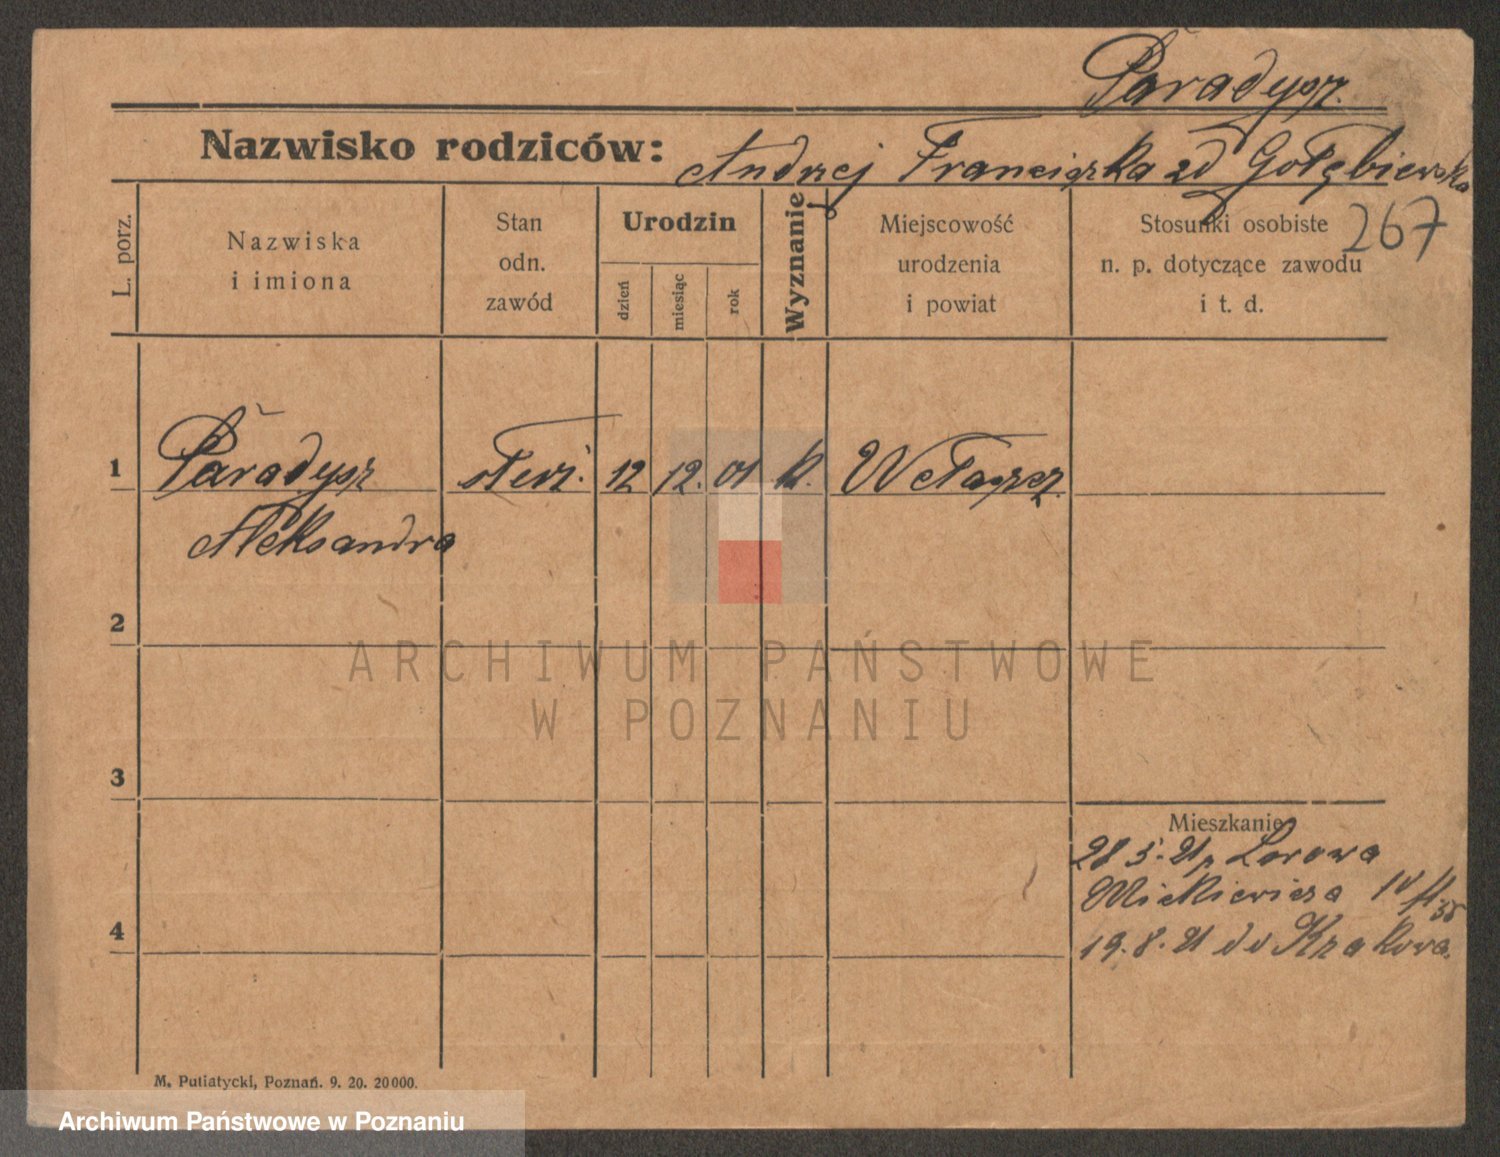 Paradysz.
Nazwisko rodziców: Andrzej Franciszka zd Gołębiewska
267
L. porz.
Nazwiska
i imiona
Stan
odn.
zawód
Urodzin
dzień
miesiąc
rok
Wyznanie
Miejscowość
urodzenia
i powiat
Stosunki osobiste
n. p. dotyczące zawodu
i t. d.
1 Paradysz 12 12. 01 k.
Aleksandra
2
3
4
Mieszkanie
28 5. 21
Mickiewicza
19. 8. 21 do Krakowa.
ARCHIWUM PAŃSTWOWE
W POZNANIU
M. Putiatycki, Poznań. 9. 20. 20000.
Archiwum Państwowe w Poznaniu